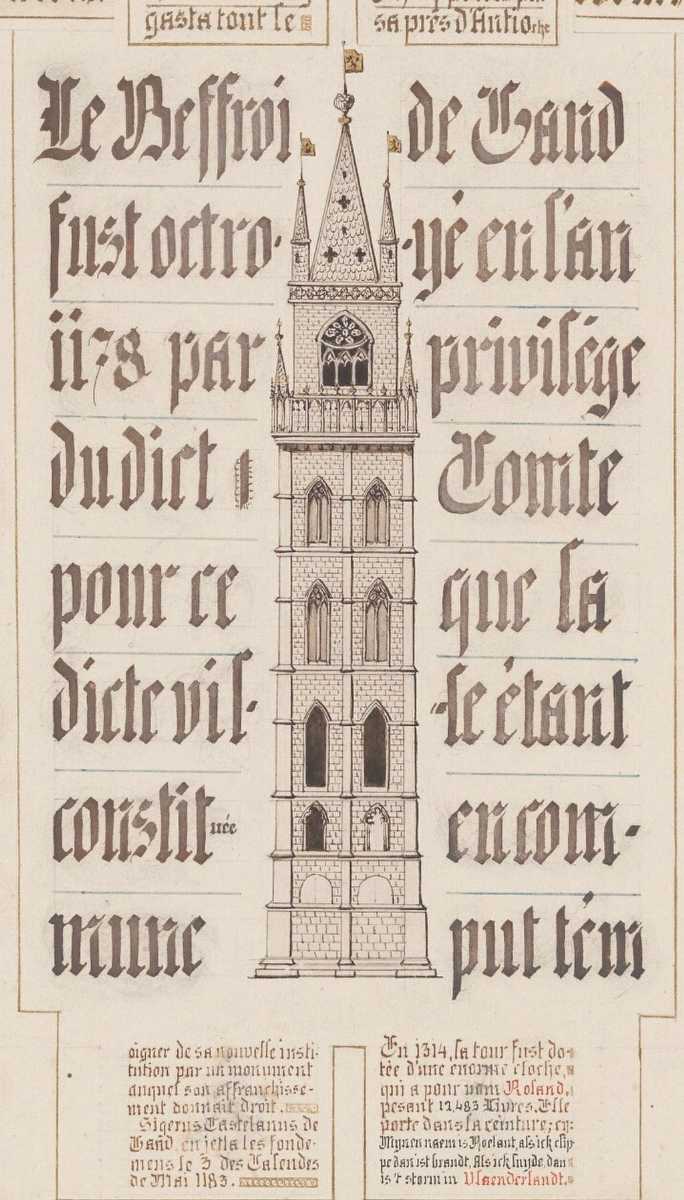 gasta tout le
sa près d'Antioche
Le Beffroi de Gand
fust octro- -yé en l'an
1178 par privilége
du dict Comte
pour ce que la
dicte vil- -le étant
constituée en com-
mune put tém
oigner de sa nouvelle insti-
tution par un monument
auquel son affranchisse-
ment donnait droit.
Sigerus Castelanus de
Gand en jetta les fonde-
mens le 3 des Calendes
de Mai 1183.
En 1314, la tour fust do-
tée d'une enorme cloche,
qui a pour nom Roland,
pesant 12,483 Livres. Elle
porte dans la ceinture; cy:
Mynen naem is Roelant, als ick clip-
pe dan ist brandt, Als ick luyde, dan
is't storm in Vlaenderlandt.